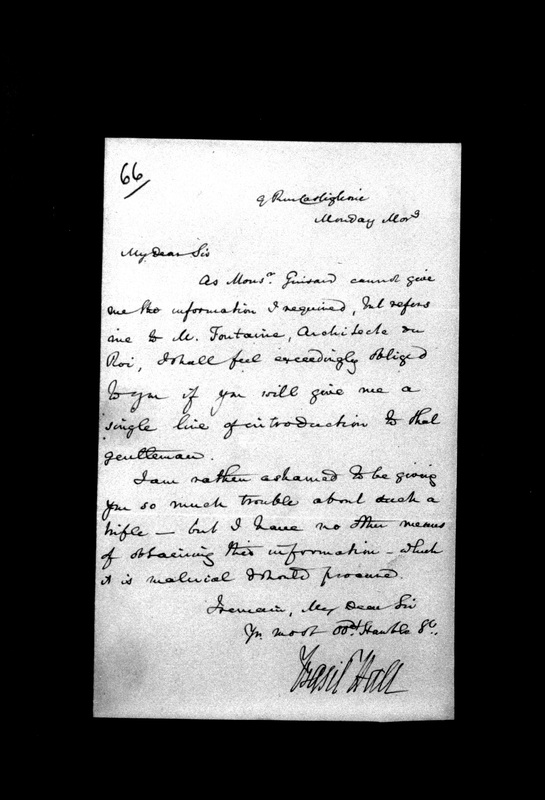 66
9 Rue Castiglione
Monday Morg
My Dear Sir
As Monsr. Guisard cannot give
me the information I required, but refers
me to M. Fontaine, Architecte du
Roi, I shall feel exceedingly obliged
to you if you will give me a
single line of introduction to that
gentleman.
I am rather ashamed to be giving
you so much trouble about such a
trifle – but I have no other means
of obtaining this information – which
it is material I should procure.
I remain, My Dear Sir
Yr. most Obdt. Humble St.
Basil Hall